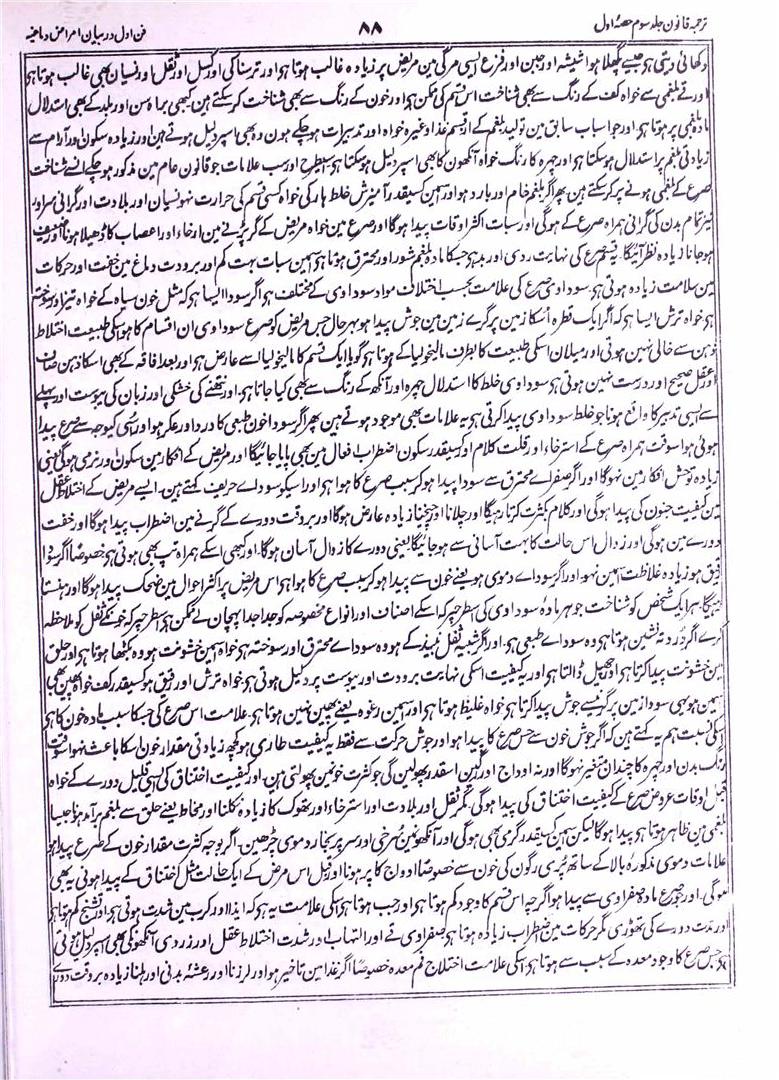 ترجمہ قانون جلد سوم حصۂ اول
۸۸
فن اول در بیان امراض دماغیہ
دکھائی دیتی ہو جیسے پگھلا ہوا شیشہ اور جبن اور فزع ایسی مرگی مین مریض پر زیادہ غالب ہوتا ہو اور ترسناکی اور کسل اور ثقل اور نسیان بھی غالب ہوتا ہو
اور قے بلغمی سے خواہ کف کے رنگ سے بھی شناخت اس قسم کی ممکن ہو اور خون کے رنگ سے بھی شناخت کر سکتے ہین کبھی براہ سن اور بلد کے بھی استدلال
مادہ بلغمی پر ہوتا ہو اور جو اسباب سابق مین تولید بلغم کے از قسم غذا وغیرہ خواہ اور تدبیرات ہو چکے ہون وہ بھی اسپر دلیل ہوتے ہین اور زیادہ سکون اور آرام سے
زیادتی بلغم پر استدلال ہو سکتا ہو اور چہرہ کا رنگ خواہ آنکھون کا بھی اسپر دلیل ہو سکتا ہو اسیطرح اور سب علامات جو قانون عام مین مذکور ہو چکے اُنسے شناخت
صرع کے بلغمی ہونے پر کر سکتے ہین پھر اگر بلغم خام اور بارد ہو اور اسمین کسیقدر آمیزش خلط حار کی خواہ کسی قسم کی حرارت نہو نسیان اور بلادت اور گرانی سر اور
نیز تمام بدن کی گرانی ہمراہ صرع کے ہوگی اور سبات اکثر اوقات پیدا ہوگا اور صرع مین خواہ مریض کے گر پڑنے مین ارخاء اور اعصاب کا ڈھیلا ہونا اور ضعیف
ہو جانا زیادہ نظر آئیگا۔ یہ قسم صرع کی نہایت ردی اور بد ہو جسکا مادہ بلغم شور اور محترق ہوتا ہو اسمین سبات بہت کم اور برودت دماغ مین خفت اور حرکات
مین سلامت زیادہ ہوتی ہو۔ سوداوی صرع کی علامت بحسب اختلاف مواد سوداوی کے مختلف ہو اگر سودا ایسا ہو کہ مثل خون سیاہ کے خواہ تیز اور سوختہ
ہو خواہ ترش ایسا ہو کہ اگر ایک قطرہ اُسکا زمین پر گرے زمین مین جوش پیدا ہو بہر حال جس مریض کو صرع سوداوی ان اقسام کا ہو اسکی طبیعت اختلاط
ذہن سے خالی نہین ہوتی اور میلان اسکی طبیعت کا بطرف مالیخولیا کے ہوتا ہو گویا ایک قسم کا مالیخولیا اُسے عارض ہو اور بعد افاقہ کے بھی اسکا ذہن صاف
اور عقل صحیح اور درست نہین ہوتی ہو سوداوی خلط کا استدلال چہرہ اور آنکھ کے رنگ سے بھی کیا جاتا ہو اور نتھنے کی خشکی اور زبان کی یبوست اور پہلے
سے ایسی تدبیر کا واقع ہونا جو خلط سوداوی پیدا کرتی ہو یہ علامات بھی موجود ہوتے ہین پھر اگر سودا خون طبعی کا درد اور عکر ہو اور اسی کیوجہ سے صرع پیدا
ہوئی ہو اسوقت ہمراہ صرع کے استرخاء اور قلت کلام اور کسیقدر سکون اضطراب فعال مین بھی پایا جائیگا اور مریض کے افکار مین سکون اور نرمی ہوگی یعنی
زیادہ توحش افکار مین نہوگا اور اگر صفراے محترق سے سودا پیدا ہو کر سبب صرع کا ہوا ہو اور اسیکو سوداے حریف کہتے ہین۔ ایسے مریض کے اختلاط عقل
مین کیفیت جنون کی پیدا ہوگی اور کلام بکثرت کرتا رہیگا اور چلانا اور چیخنا زیادہ عارض ہوگا اور بروقت دورے کے گرنے مین اضطراب پیدا ہوگا اور خفت
دورے مین ہوگی اور زوال اس حالت کا بہت آسانی سے ہو جائیگا یعنی دورے کا زوال آسان ہوگا۔ اور کبھی اسکے ہمراہ تپ بھی ہوتی ہو خصوصاً اگر سودا
رقیق ہو زیادہ غلاظت اسمین نہو۔ اور اگر سوداے دموی ہو یعنے خون سے پیدا ہو کر سبب صرع کا ہوا ہو اس مریض پر اکثر احوال مین ضحک پیدا ہوگا اور ہنستا
رہیگا۔ ہر ایک شخص کو شناخت جوہر مادہ سوداوی کی اسطرح پر کہ اسکے اصناف اور انواع مخصوصہ کو جدا جدا پہچان لے ممکن ہو اسطرح پر کہ خون کے ثفل کو ملاحظہ
کرے اگر دُرد تہ نشین ہوتا ہو وہ سوداے طبیعی ہو۔ اور اگر شبیہ ثفل نبیذ کے ہو وہ سوداے محترق اور سوختہ ہو خواہ اسمین خشونت ہو وہ بکٹھا ہوتا ہو اور حلق
مین خشونت پیدا کرتا ہو اور چھیل ڈالتا ہو اور یہ کیفیت اسکی نہایت برودت اور یبوست پر دلیل ہوتی ہو خواہ ترش اور رقیق ہو کسیقدر کف خواہ پھین بھی
اسمین ہو یہی سودا زمین پر گرنیسے جوش پیدا کرتا ہو خواہ غلیظ ہوتا ہو اور اسمین رغوہ یعنے پھین نہین ہوتا ہو۔ علامت اس صرع کی جسکا سبب مادہ خون کا ہو
اسکی نسبت ہم یہ کہتے ہین کہ اگر جوش خون سے جس صرع کا پیدا ہوا اور جوش حرکت سے فقط یہ کیفیت طاری ہو کچھ زیادتی مقدار خون اسکا باعث نہو اسوقت
رنگ بدن اور چہرہ کا چندان متغیر نہوگا اور نہ اوداج اور رگین اسقدر پھولین گی جو کثرت خون مین پھولتی ہین۔ اور کیفیت اختناق کی ایسی قلیل دورے کے خواہ
قبل اوقات عروض صرع کے کیفیت اختناق کی پیدا ہوگی مگر ثقل اور بلادت اور استرخاء اور تھوک کا زیادہ نکلنا اور مخاط یعنے حلق سے بلغم برآمد ہونا جیسا
بلغمی مین ظاہر ہوتا ہو پیدا ہوگا لیکن اسمین کسیقدر گرمی بھی ہوگی اور آنکھونمین سُرخی اور سر پر بخار دموی چڑھین۔ اگر بوجہ کثرت مقدار خون کے صرع پیدا ہو
علامات دموی مذکورۂ بالا کے ساتھ پُری رگون کی خون سے خصوصاً اوداج کا پر ہونا اور قبل اس مرض کے ایک حالت مثل اختناق کے پیدا ہونی یہ بھی
ہوگی۔ اور جو صرع مادہ صفراوی سے پیدا ہو اگرچہ اس قسم کا وجود کم ہوتا ہو اور جب ہوتا ہو اسکی علامت یہ ہو کہ ایذا اور کرب مین شدت ہوتی ہو اور تشنج کم ہوتا ہو
اور مدت دورے کی تھوڑی مگر حرکات مین اضطراب زیادہ ہوتا ہو صفراوی قے اور التہاب اور شدت اختلاط عقل اور زردی آنکھونکی بھی اسپر دلیل ہوتی
ہو جس صرع کا وجود معدہ کے سبب سے ہوتا ہو اسکی علامت اختلاج فم معدہ خصوصاً اگر غذا مین تاخیر ہو اور لرزنا اور رعشۂ بدنی اور ہلنا زیادہ بروقت دورے